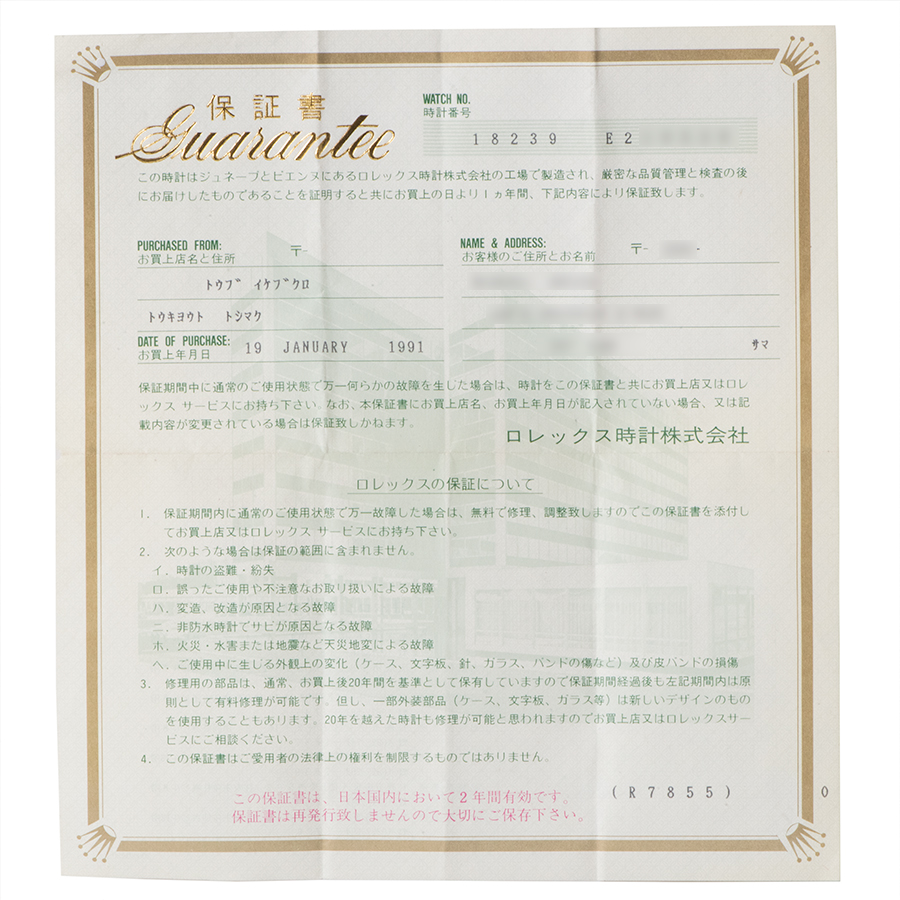 保証書
Guarantee
WATCH NO.
時計番号
18239 E2
この時計はジュネーブとビエンヌにあるロレックス時計株式会社の工場で製造され、厳密な品質管理と検査の後
にお届けしたものであることを証明すると共にお買上の日より1ヵ年間、下記内容により保証致します。
PURCHASED FROM:
お買上店名と住所
〒-
トウブ イケブクロ
トウキヨウト トシマク
DATE OF PURCHASE:
お買上年月日
19 JANUARY 1991
NAME & ADDRESS:
お客様のご住所とお名前
〒- -
サマ
保証期間中に通常のご使用状態で万一何らかの故障を生じた場合は、時計をこの保証書と共にお買上店又はロレ
ックス サービスにお持ち下さい。なお、本保証書にお買上店名、お買上年月日が記入されていない場合、又は記
載内容が変更されている場合は保証致しかねます。
ロレックス時計株式会社
ロレックスの保証について
1. 保証期間内に通常のご使用状態で万一故障した場合は、無料で修理、調整致しますのでこの保証書を添付し
てお買上店又はロレックス サービスにお持ち下さい。
2. 次のような場合は保証の範囲に含まれません。
イ. 時計の盗難・紛失
ロ. 誤ったご使用や不注意なお取り扱いによる故障
ハ. 変造、改造が原因となる故障
ニ. 非防水時計でサビが原因となる故障
ホ. 火災・水害または地震など天災地変による故障
ヘ. ご使用中に生じる外観上の変化（ケース、文字板、針、ガラス、バンドの傷など）及び皮バンドの損傷
3. 修理用の部品は、通常、お買上後20年間を基準として保有していますので保証期間経過後も左記期間内は原
則として有料修理が可能です。但し、一部外装部品（ケース、文字板、ガラス等）は新しいデザインのもの
を使用することもあります。20年を越えた時計も修理が可能と思われますのでお買上店又はロレックスサー
ビスにご相談ください。
4. この保証書はご愛用者の法律上の権利を制限するものではありません。
この保証書は、日本国内において2年間有効です。
保証書は再発行致しませんので大切にご保存下さい。
(R7855)
0